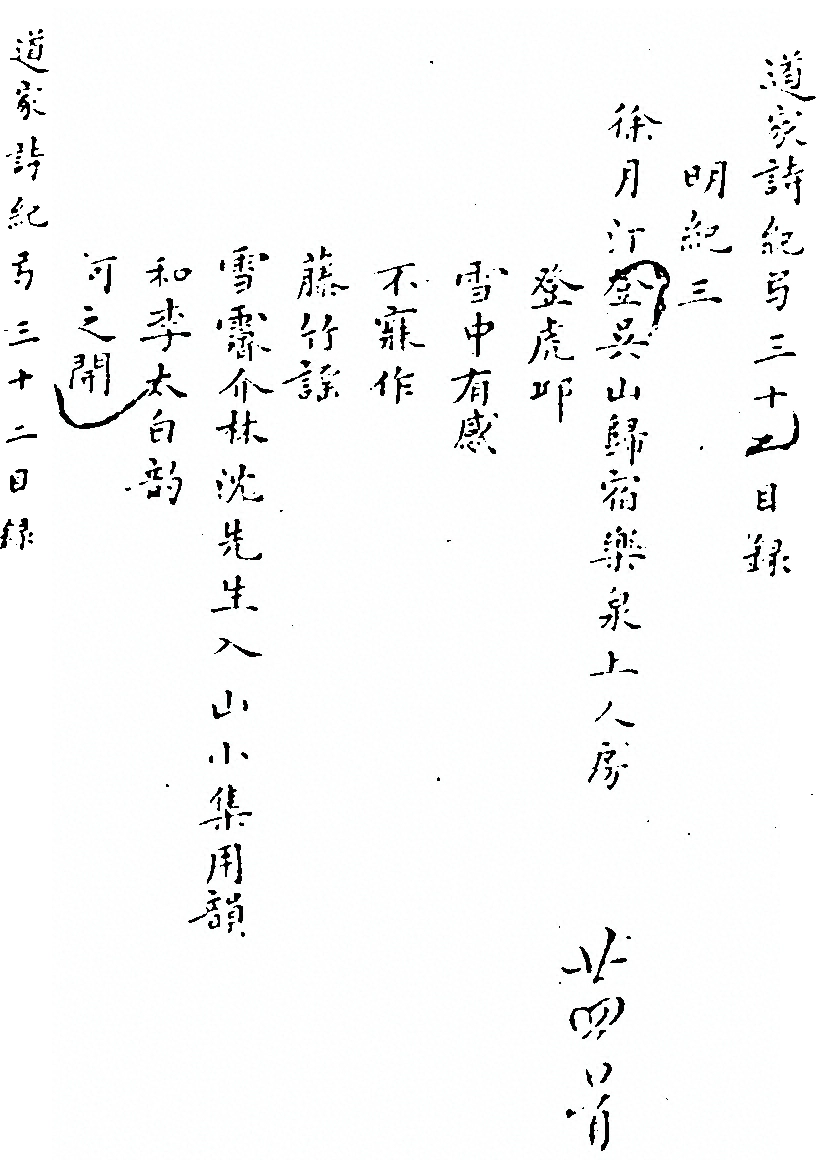 道家詩紀弓三十二目録
明紀三
徐月汀登吳山歸宿樂泉上人房
廿四首
登虎邱
雪中有感
不寐作
藤竹謡
雪霽介林沈先生入山小集用韻
和李太白韵
何之開
道家詩紀弓三十二目録